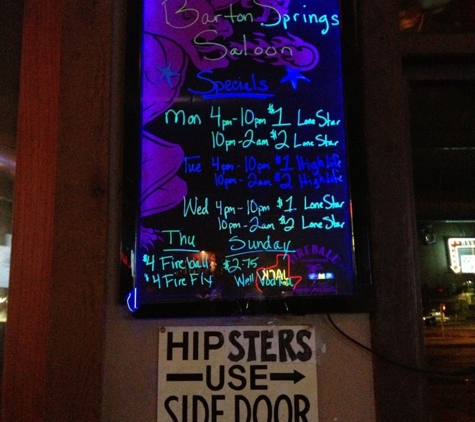 Barton Springs
Saloon
Specials
Mon 4pm-10pm $1 Lone Star
10pm-2am $2 Lone Star
Tue 4pm-10pm $1 High Life
10pm-2am $2 High Life
Wed 4pm-10pm $1 Lone Star
10pm-2am $2 Lone Star
Thu Sunday
$4 Fireball $2.75
$4 Fire Fly Well Vodka
FIREBALL
HIPSTERS
USE
SIDE DOOR